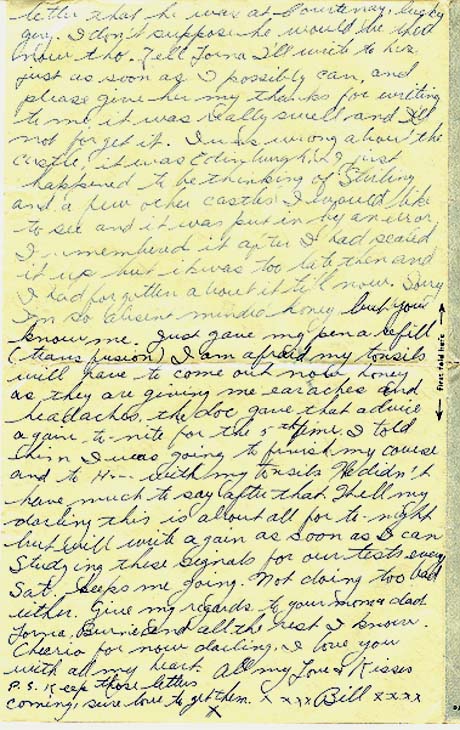 letter that he was at Courtenay, lucky
guy. I don't suppose he would be there
now tho. Tell Lorna I'll write to her
just as soon as I possibly can, and
please give her my thanks for writing
to me it was really swell and I'll
not forget it. I was wrong about the
castle, it was Edinburgh. I just
happened to be thinking of Stirling
and a few other castles I would like
to see and it was put in by an error,
I remembered it after I had sealed
it up but it was too late then and
I had forgotten about it till now. Sorry
I'm so absent minded honey but you
know me. Just gave my pen a refill
(transfusion) I am afraid my tonsils
will have to come out now honey
as they are giving me earaches and
headaches. the doc gave that advice
again to-nite for the 5th time. I told
him I was going to finish my course
and to H--- with my tonsils He didn't
have much to say after that. Well my
darling this is about all for to-night
but will write again as soon as I can
Studying these signals for our tests every
Sat. keeps me going. Not doing too bad
either. Give my regards to your mom & dad
Lorna, and all the rest I know.
Cheerio for now darling, I love you
with all my heart All my Love & Kisses
P.S. Keep those letters
coming, sure love to get them. x xxx Bill xxxx
x
First fold here